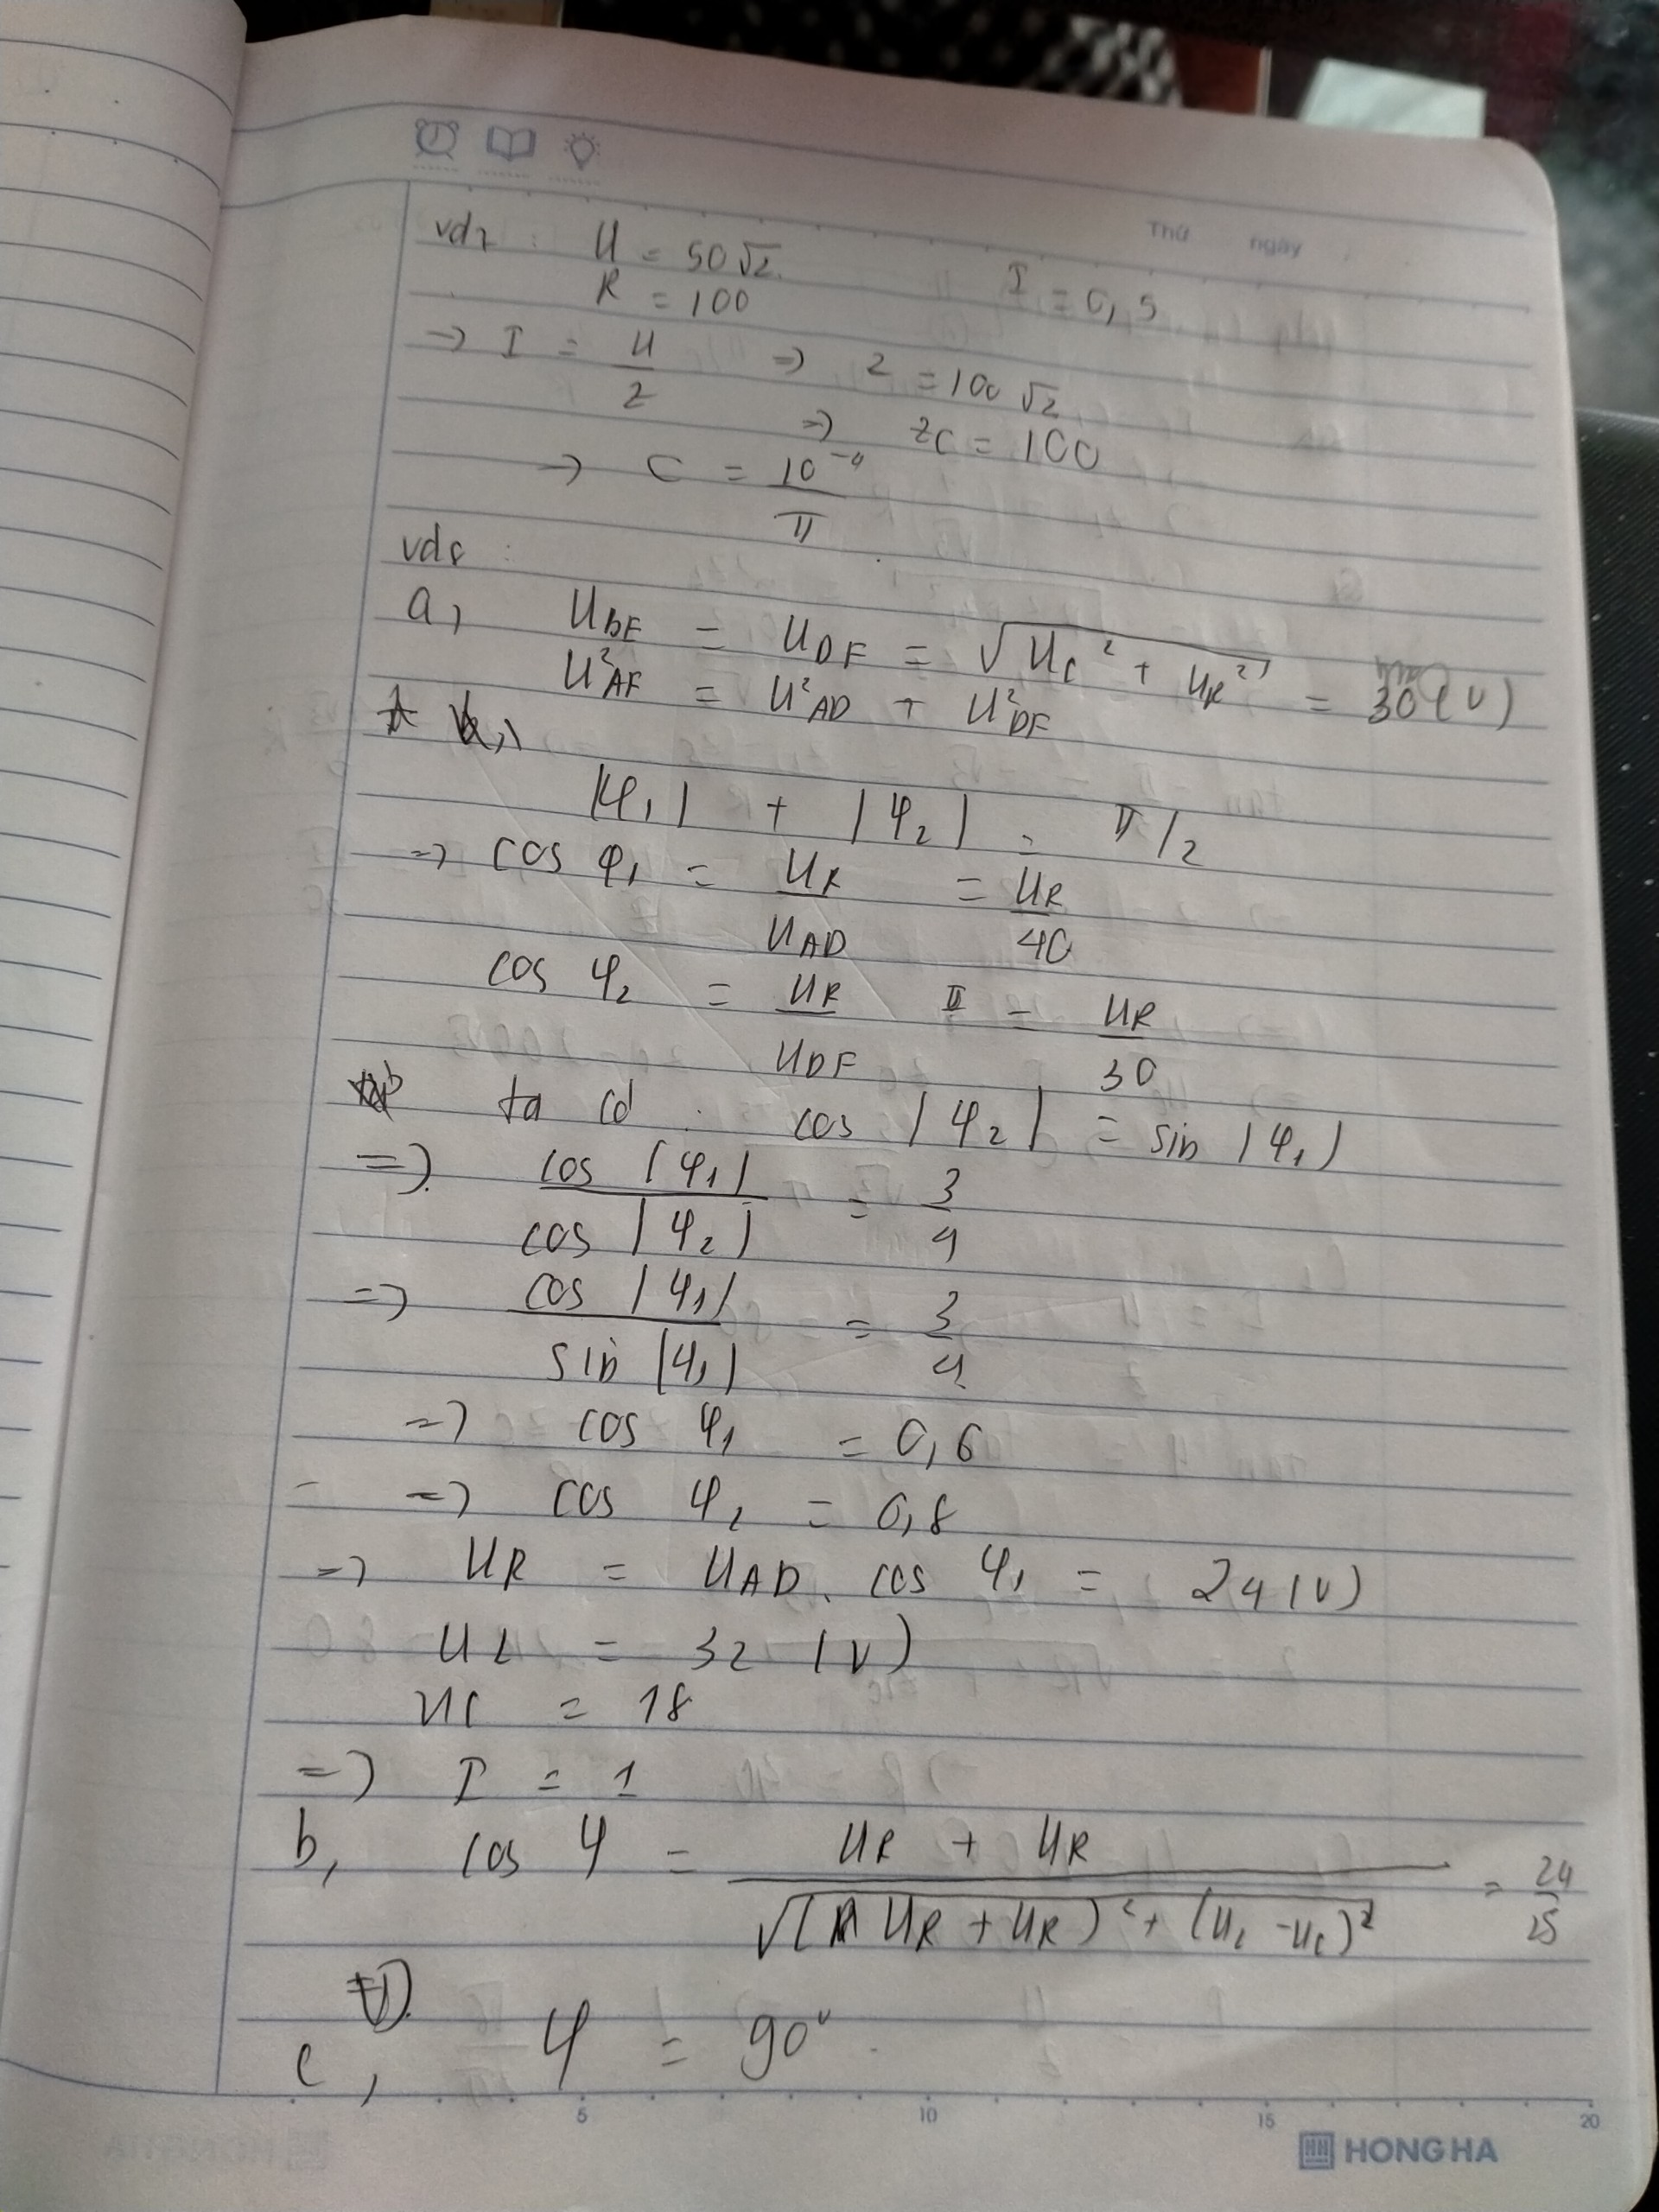 Thứ ngày
vd7 : U = 50√2 I = 0,5
R = 100
=> I = U/Z => Z = 100√2
=> ZC = 100
=> C = 10^-4/π
vd8 :
a, U_BF = U_DF = √(U_C² + U_R²) = 30 (V)
U²_AF = U²_AD + U²_DF
|φ₁| + |φ₂| = π/2
=> cos φ₁ = U_R/U_AD = U_R/40
cos φ₂ = U_R/U_DF = U_R/30
ta có : cos |φ₂| = sin |φ₁|
=> cos |φ₁| / cos |φ₂| = 3/4
=> cos |φ₁| / sin |φ₁| = 3/4
=> cos φ₁ = 0,6
=> cos φ₂ = 0,8
=> U_R = U_AD . cos φ₁ = 24 (V)
U_L = 32 (V)
U_C = 18
=> I = 1
b, cos φ = (U_R + U_R) / √((U_R + U_R)² + (U_L - U_C)²) = 24/25
c, φ = 90°
5 10 15 20
HONG HA